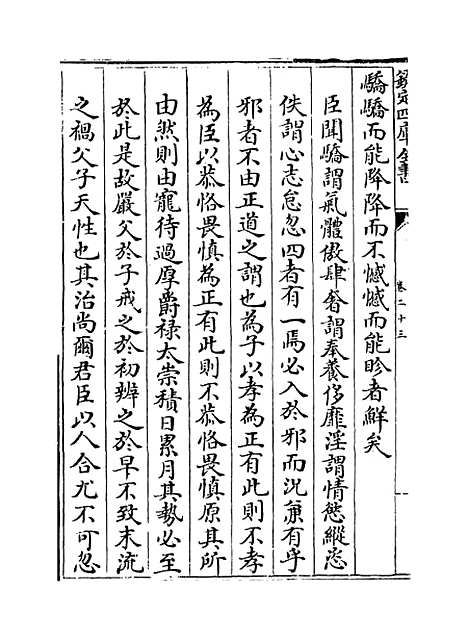 欽定四庫全書
卷二十三
驕驕而能降降而不憾憾而能眕者鮮矣
臣聞驕謂氣體傲肆奢謂奉養侈靡淫謂情慾縱恣
佚謂心志怠忽四者有一焉必入於邪而況兼有乎
邪者不由正道之謂也為子以孝為正有此則不孝
為臣以恭恪畏慎為正有此則不恭恪畏慎原其所
由然則由寵待過厚爵祿太崇積日累月其勢必至
於此是故嚴父於子戒之於初辨之於早不致末流
之禍父子天性也其治尚爾君臣以人合尤不可忽